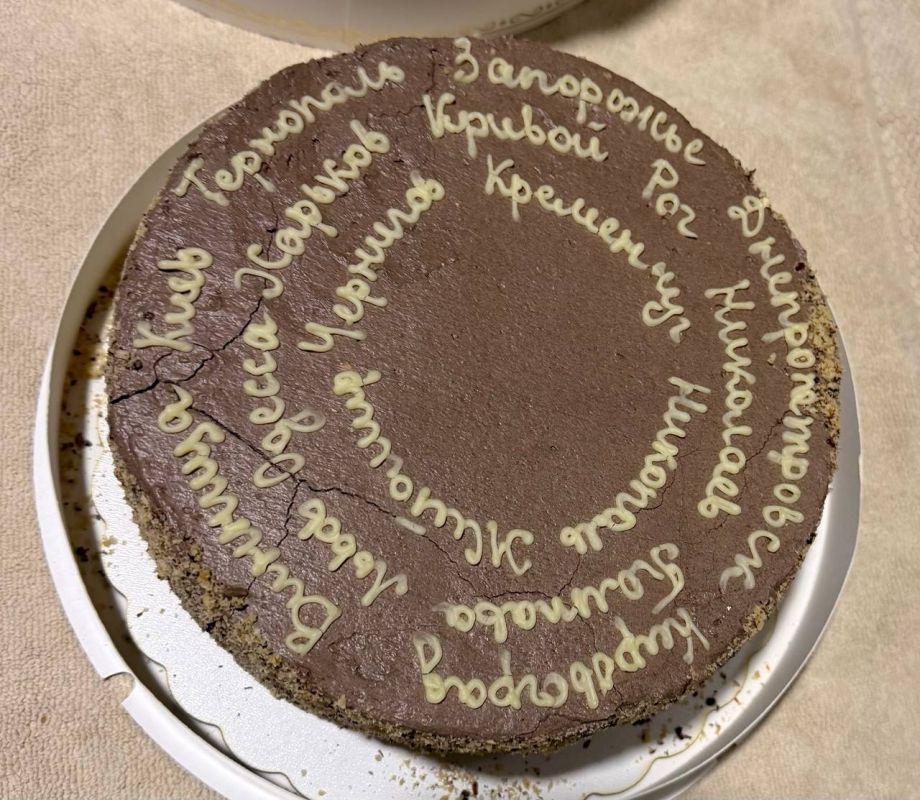 Запорожье
Днепропетровск
Кировоград
Винница
Киев
Тернополь
Кривой Рог
Николаев
Полтава
Львов
Одесса
Харьков
Кременчуг
Никополь
Житомир
Чернигов